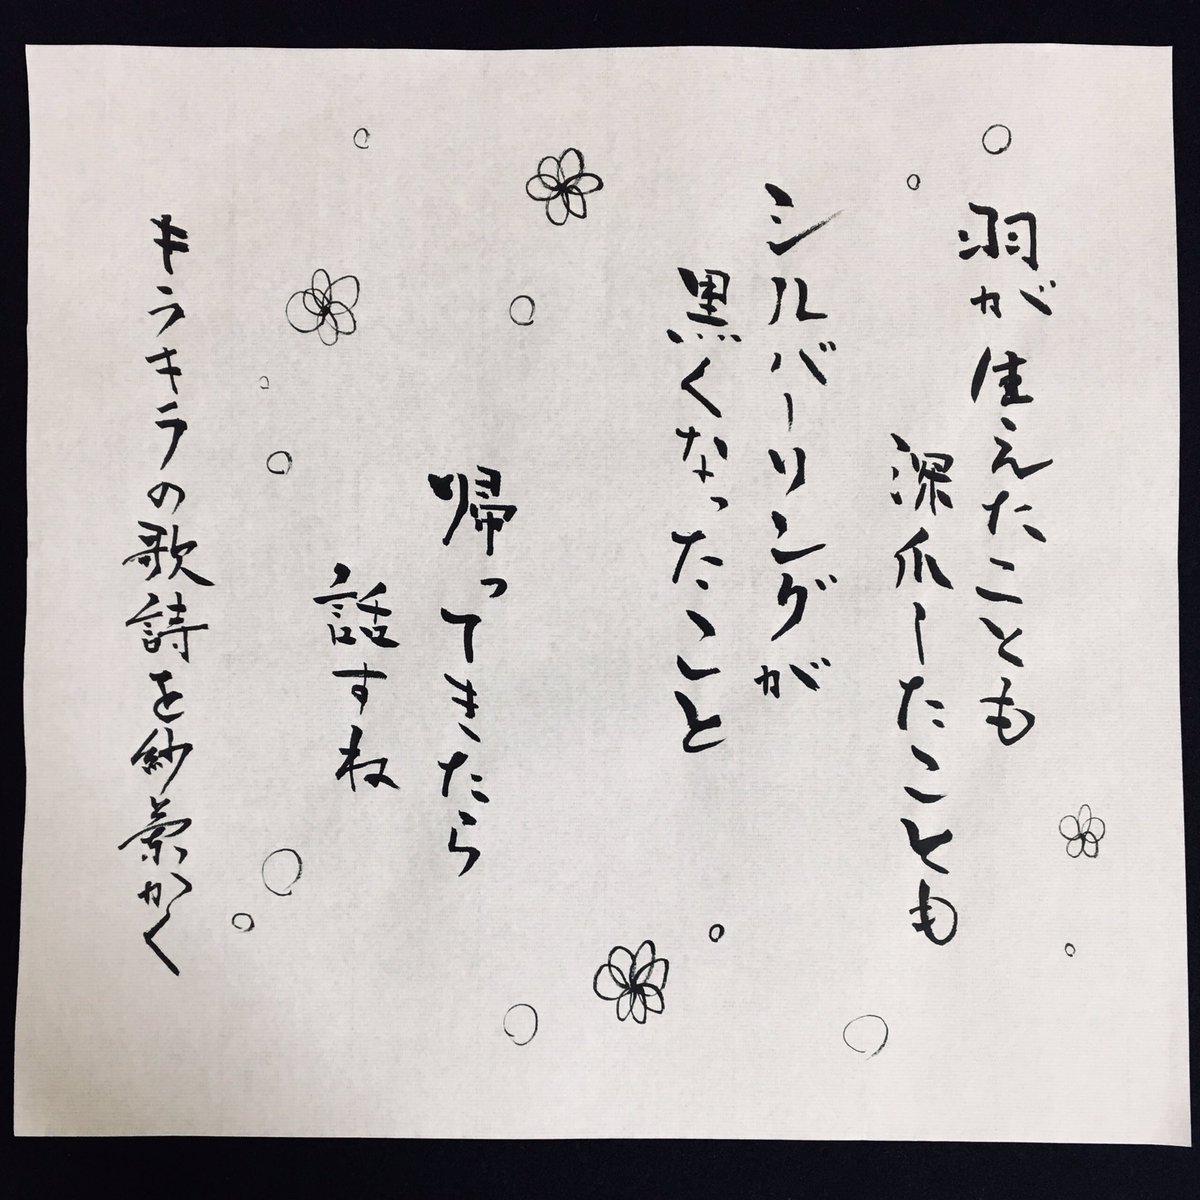 羽が生えたことも
深爪したことも
シルバーリングが
黒くなったこと
帰ってきたら
話すね
キラキラの歌詩を紗蘭かく